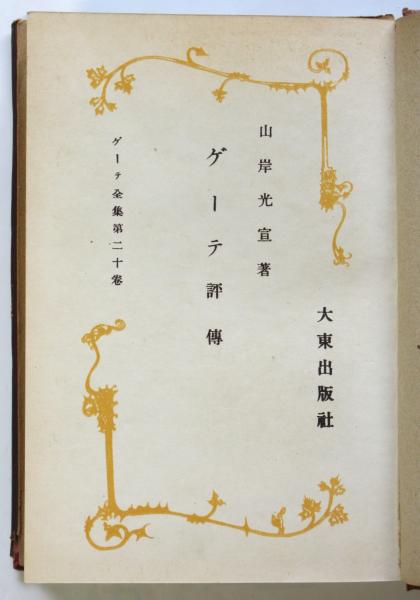 大東出版社
山岸光宣著
ゲーテ評傳
ゲーテ全集第二十卷